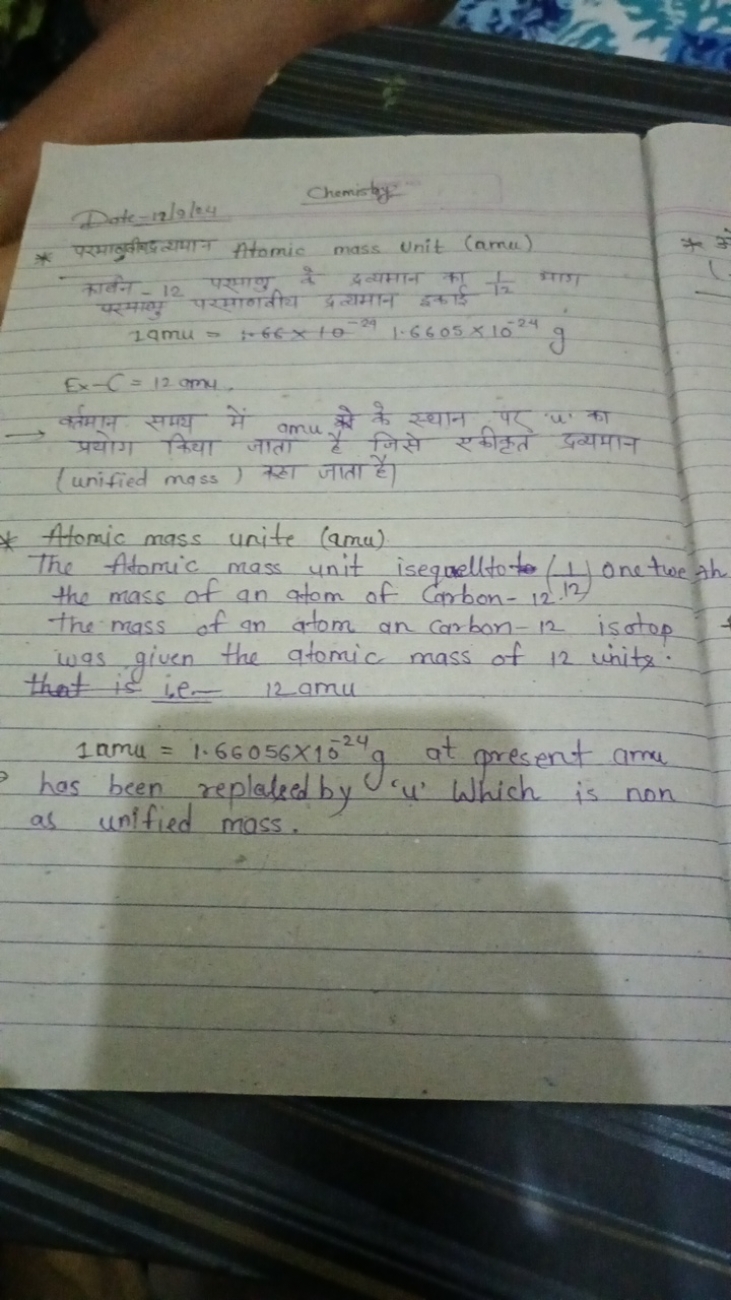 Chemistry
Date-12/9/24
* परमाणवीय द्रव्यमान Atomic mass unit (amu)
कार्बन-12 परमाणु के द्रव्यमान का 1/12 भाग
परमाणु परमाणवीय द्रव्यमान इकाई
1amu = 1.66×10^-24 1.6605×10^-24 g
Ex-C = 12 amu.
→ वर्तमान समय में amu के स्थान पर 'u' का
प्रयोग किया जाता है जिसे एकीकृत द्रव्यमान
(unified mass) कहा जाता है।
* Atomic mass unite (amu)
The Atomic mass unit isequelltoto (1/12) one twe th
the mass of an atom of Carbon-12.
the mass of an atom an carbon-12 isotop
was given the atomic mass of 12 units.
that is i.e- 12amu
1amu = 1.66056×10^-24g at present amu
has been replaced by 'u' Which is non
as unified mass.